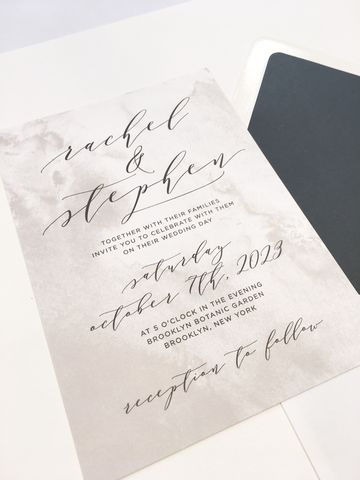 rachel
&
stephen
TOGETHER WITH THEIR FAMILIES
INVITE YOU TO CELEBRATE WITH THEM
ON THEIR WEDDING DAY
saturday
october 7th, 2023
AT 5 O'CLOCK IN THE EVENING
BROOKLYN BOTANIC GARDEN
BROOKLYN, NEW YORK
reception to follow